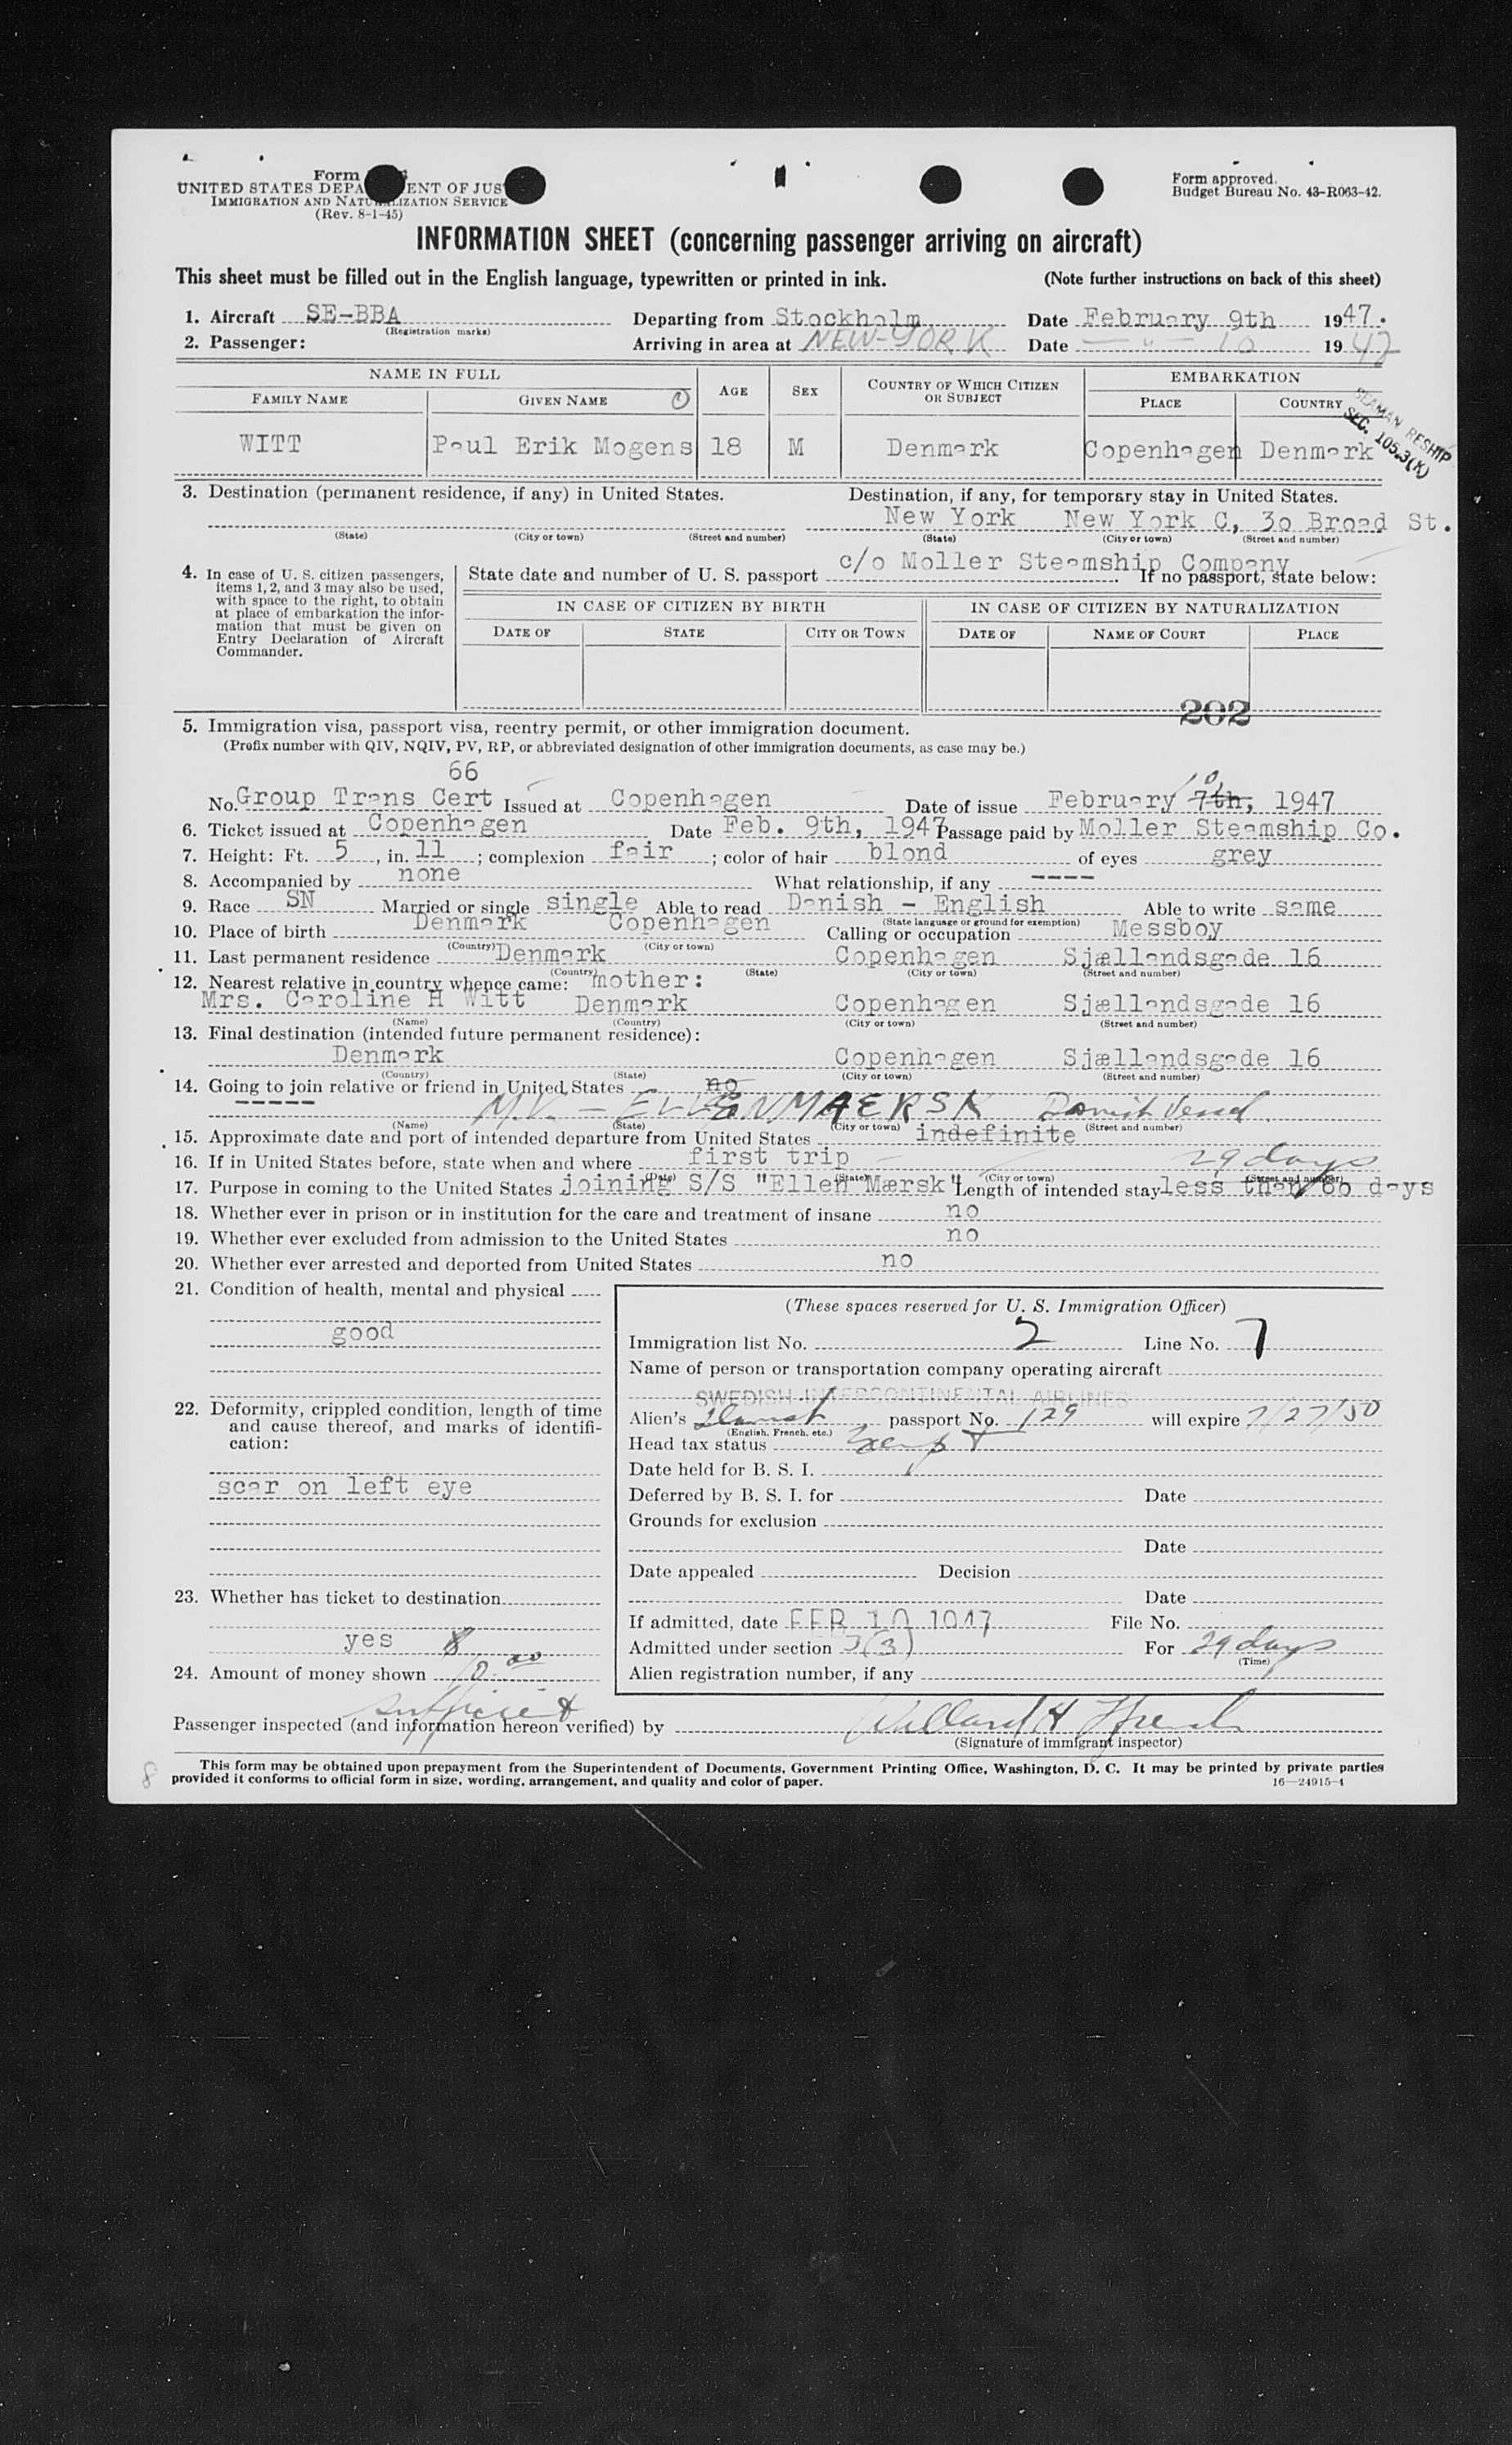 Form
UNITED STATES DEPA ENT OF JUS
IMMIGRATION AND NATURALIZATION SERVICE
(Rev. 8-1-45)
Form approved.
Budget Bureau No. 43-R063-42.
INFORMATION SHEET (concerning passenger arriving on aircraft)
This sheet must be filled out in the English language, typewritten or printed in ink. (Note further instructions on back of this sheet)
1. Aircraft SE-BBA Departing from Stockholm Date February 9th 1947.
(Registration marks)
2. Passenger: Arriving in area at NEW-YORK Date — " — 10 1947
NAME IN FULL AGE SEX COUNTRY OF WHICH CITIZEN OR SUBJECT EMBARKATION
FAMILY NAME GIVEN NAME PLACE COUNTRY
SEAMAN RESHIP
SEC. 105.3(K)
WITT Paul Erik Mogens 18 M Denmark Copenhagen Denmark
3. Destination (permanent residence, if any) in United States. Destination, if any, for temporary stay in United States.
New York New York C, 30 Broad St.
(State) (City or town) (Street and number) (State) (City or town) (Street and number)
c/o Moller Steamship Company
4. In case of U. S. citizen passengers, items 1, 2, and 3 may also be used, with space to the right, to obtain at place of embarkation the information that must be given on Entry Declaration of Aircraft Commander.
State date and number of U. S. passport If no passport, state below:
IN CASE OF CITIZEN BY BIRTH IN CASE OF CITIZEN BY NATURALIZATION
DATE OF STATE CITY OR TOWN DATE OF NAME OF COURT PLACE
202
5. Immigration visa, passport visa, reentry permit, or other immigration document.
(Prefix number with QIV, NQIV, PV, RP, or abbreviated designation of other immigration documents, as case may be.)
66 10
No. Group Trans Cert Issued at Copenhagen Date of issue February 7th, 1947
6. Ticket issued at Copenhagen Date Feb. 9th, 1947 Passage paid by Moller Steamship Co.
7. Height: Ft. 5, in. 11; complexion fair; color of hair blond of eyes grey
8. Accompanied by none What relationship, if any ----
9. Race SN Married or single single Able to read Danish - English Able to write same
(State language or ground for exemption)
10. Place of birth Denmark Copenhagen Calling or occupation Messboy
(Country) (City or town)
11. Last permanent residence Denmark Copenhagen Sjællandsgade 16
(Country) (State) (City or town) (Street and number)
12. Nearest relative in country whence came: mother:
Mrs. Caroline H Witt Denmark Copenhagen Sjællandsgade 16
(Name) (Country) (City or town) (Street and number)
13. Final destination (intended future permanent residence):
Denmark Copenhagen Sjællandsgade 16
(Country) (State) (City or town) (Street and number)
14. Going to join relative or friend in United States no
----- M.V. - ELLEN MAERSK Danish Vessel
(Name) (State) (City or town) (Street and number)
15. Approximate date and port of intended departure from United States indefinite
16. If in United States before, state when and where first trip 29 days
(Date) (State) (City or town) (Street and number)
17. Purpose in coming to the United States joining S/S "Ellen Mærsk" Length of intended stay less than 60 days
18. Whether ever in prison or in institution for the care and treatment of insane no
19. Whether ever excluded from admission to the United States no
20. Whether ever arrested and deported from United States no
21. Condition of health, mental and physical
good
22. Deformity, crippled condition, length of time and cause thereof, and marks of identification:
scar on left eye
23. Whether has ticket to destination
yes $
24. Amount of money shown 10.00
sufficient
(These spaces reserved for U. S. Immigration Officer)
Immigration list No. 2 Line No. 7
Name of person or transportation company operating aircraft
SWEDISH INTERCONTINENTAL AIRLINES
Alien's Danish passport No. 129 will expire 7/27/50
(English, French, etc.)
Head tax status Exempt
Date held for B. S. I.
Deferred by B. S. I. for Date
Grounds for exclusion
Date
Date appealed Decision
Date
If admitted, date FEB 10 1947 File No.
Admitted under section 3(3) For 29 days
(Time)
Alien registration number, if any
Passenger inspected (and information hereon verified) by Willard H
(Signature of immigrant inspector)
8
This form may be obtained upon prepayment from the Superintendent of Documents, Government Printing Office, Washington, D. C. It may be printed by private parties
provided it conforms to official form in size, wording, arrangement, and quality and color of paper. 16—24915-1